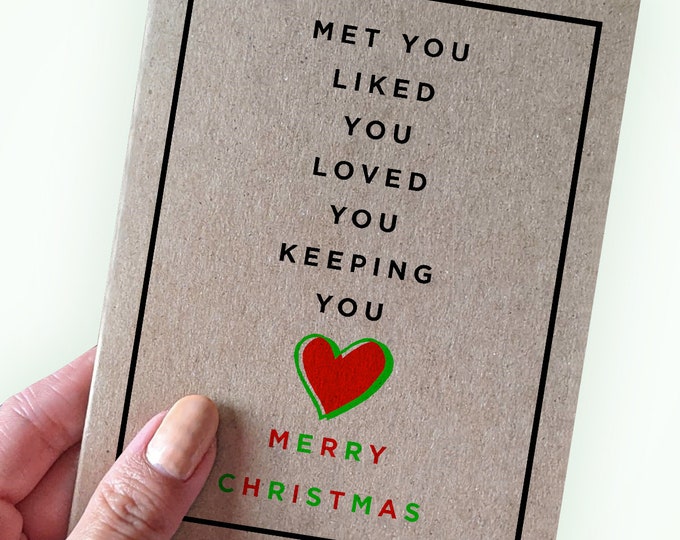 MET YOU
LIKED
YOU
LOVED
YOU
KEEPING
YOU
MERRY
CHRISTMAS